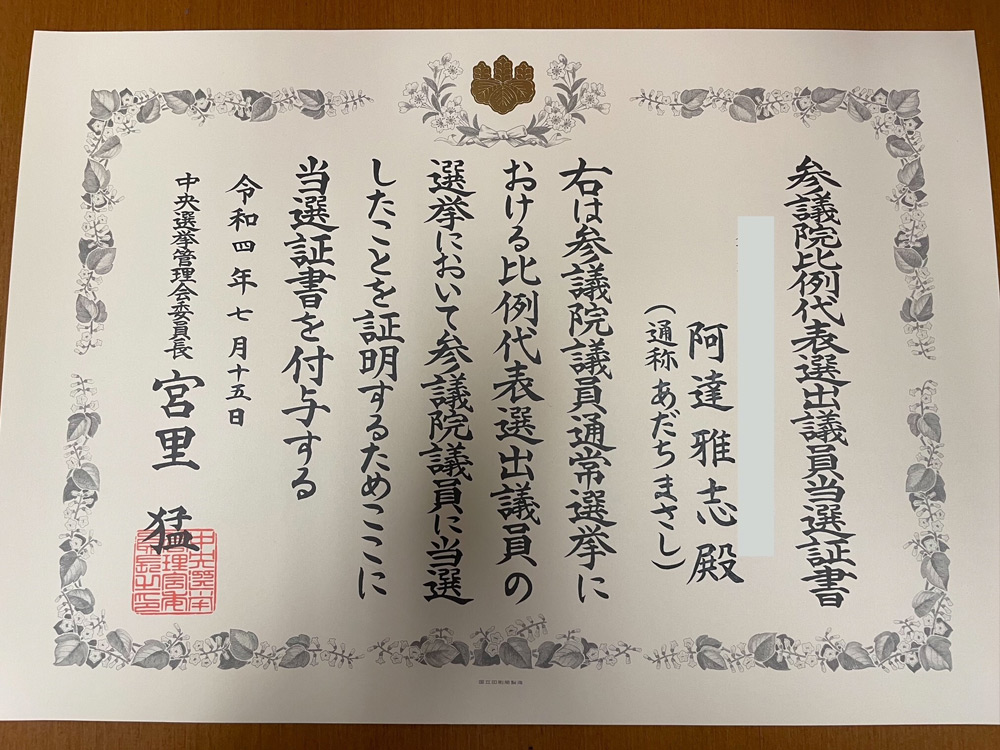 参議院比例代表選出議員当選証書
阿達雅志殿
(通称あだちまさし)
右は参議院議員通常選挙に
おける比例代表選出議員の
選挙において参議院議員に当選
したことを証明するためここに
当選証書を付与する
令和四年七月十五日
中央選挙管理会委員長
宮里猛
国立印刷局製造